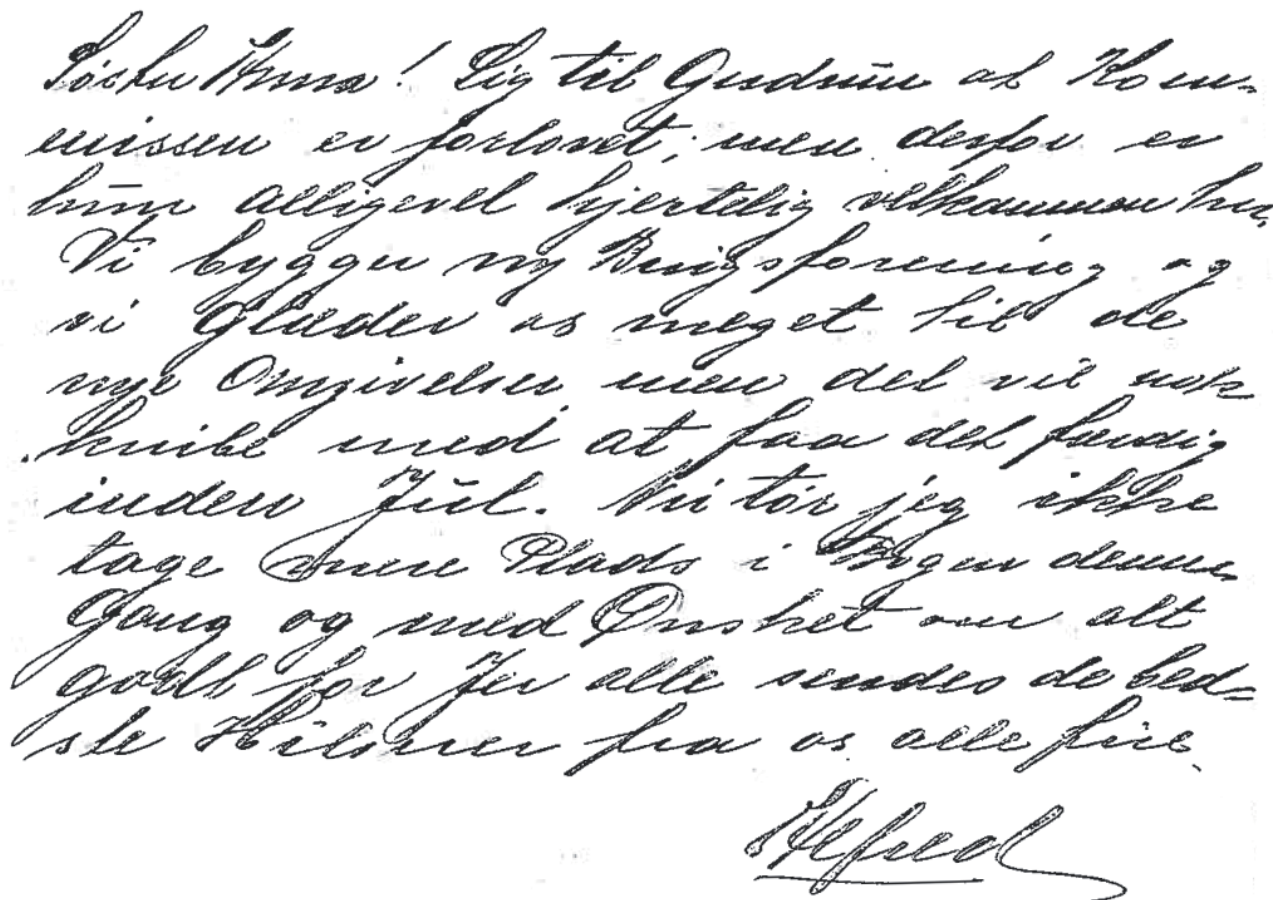 Søster Anna! Sig til Gudrun at Kom-
missen er forlovet; men derfor er
hun alligevel hjertelig velkommen her.
Vi bygger ny Brugsforening og
vi Glæder os meget til de
nye Omgivelser men det vil nok
knibe med at faa det færdig
inden Jul. Nu tør jeg ikke
tage mere Plads i Bogen denne
Gang og med Ønsket om alt
godt for Jer alle sendes de bed-
ste Hilsner fra os alle fire.
Alfred